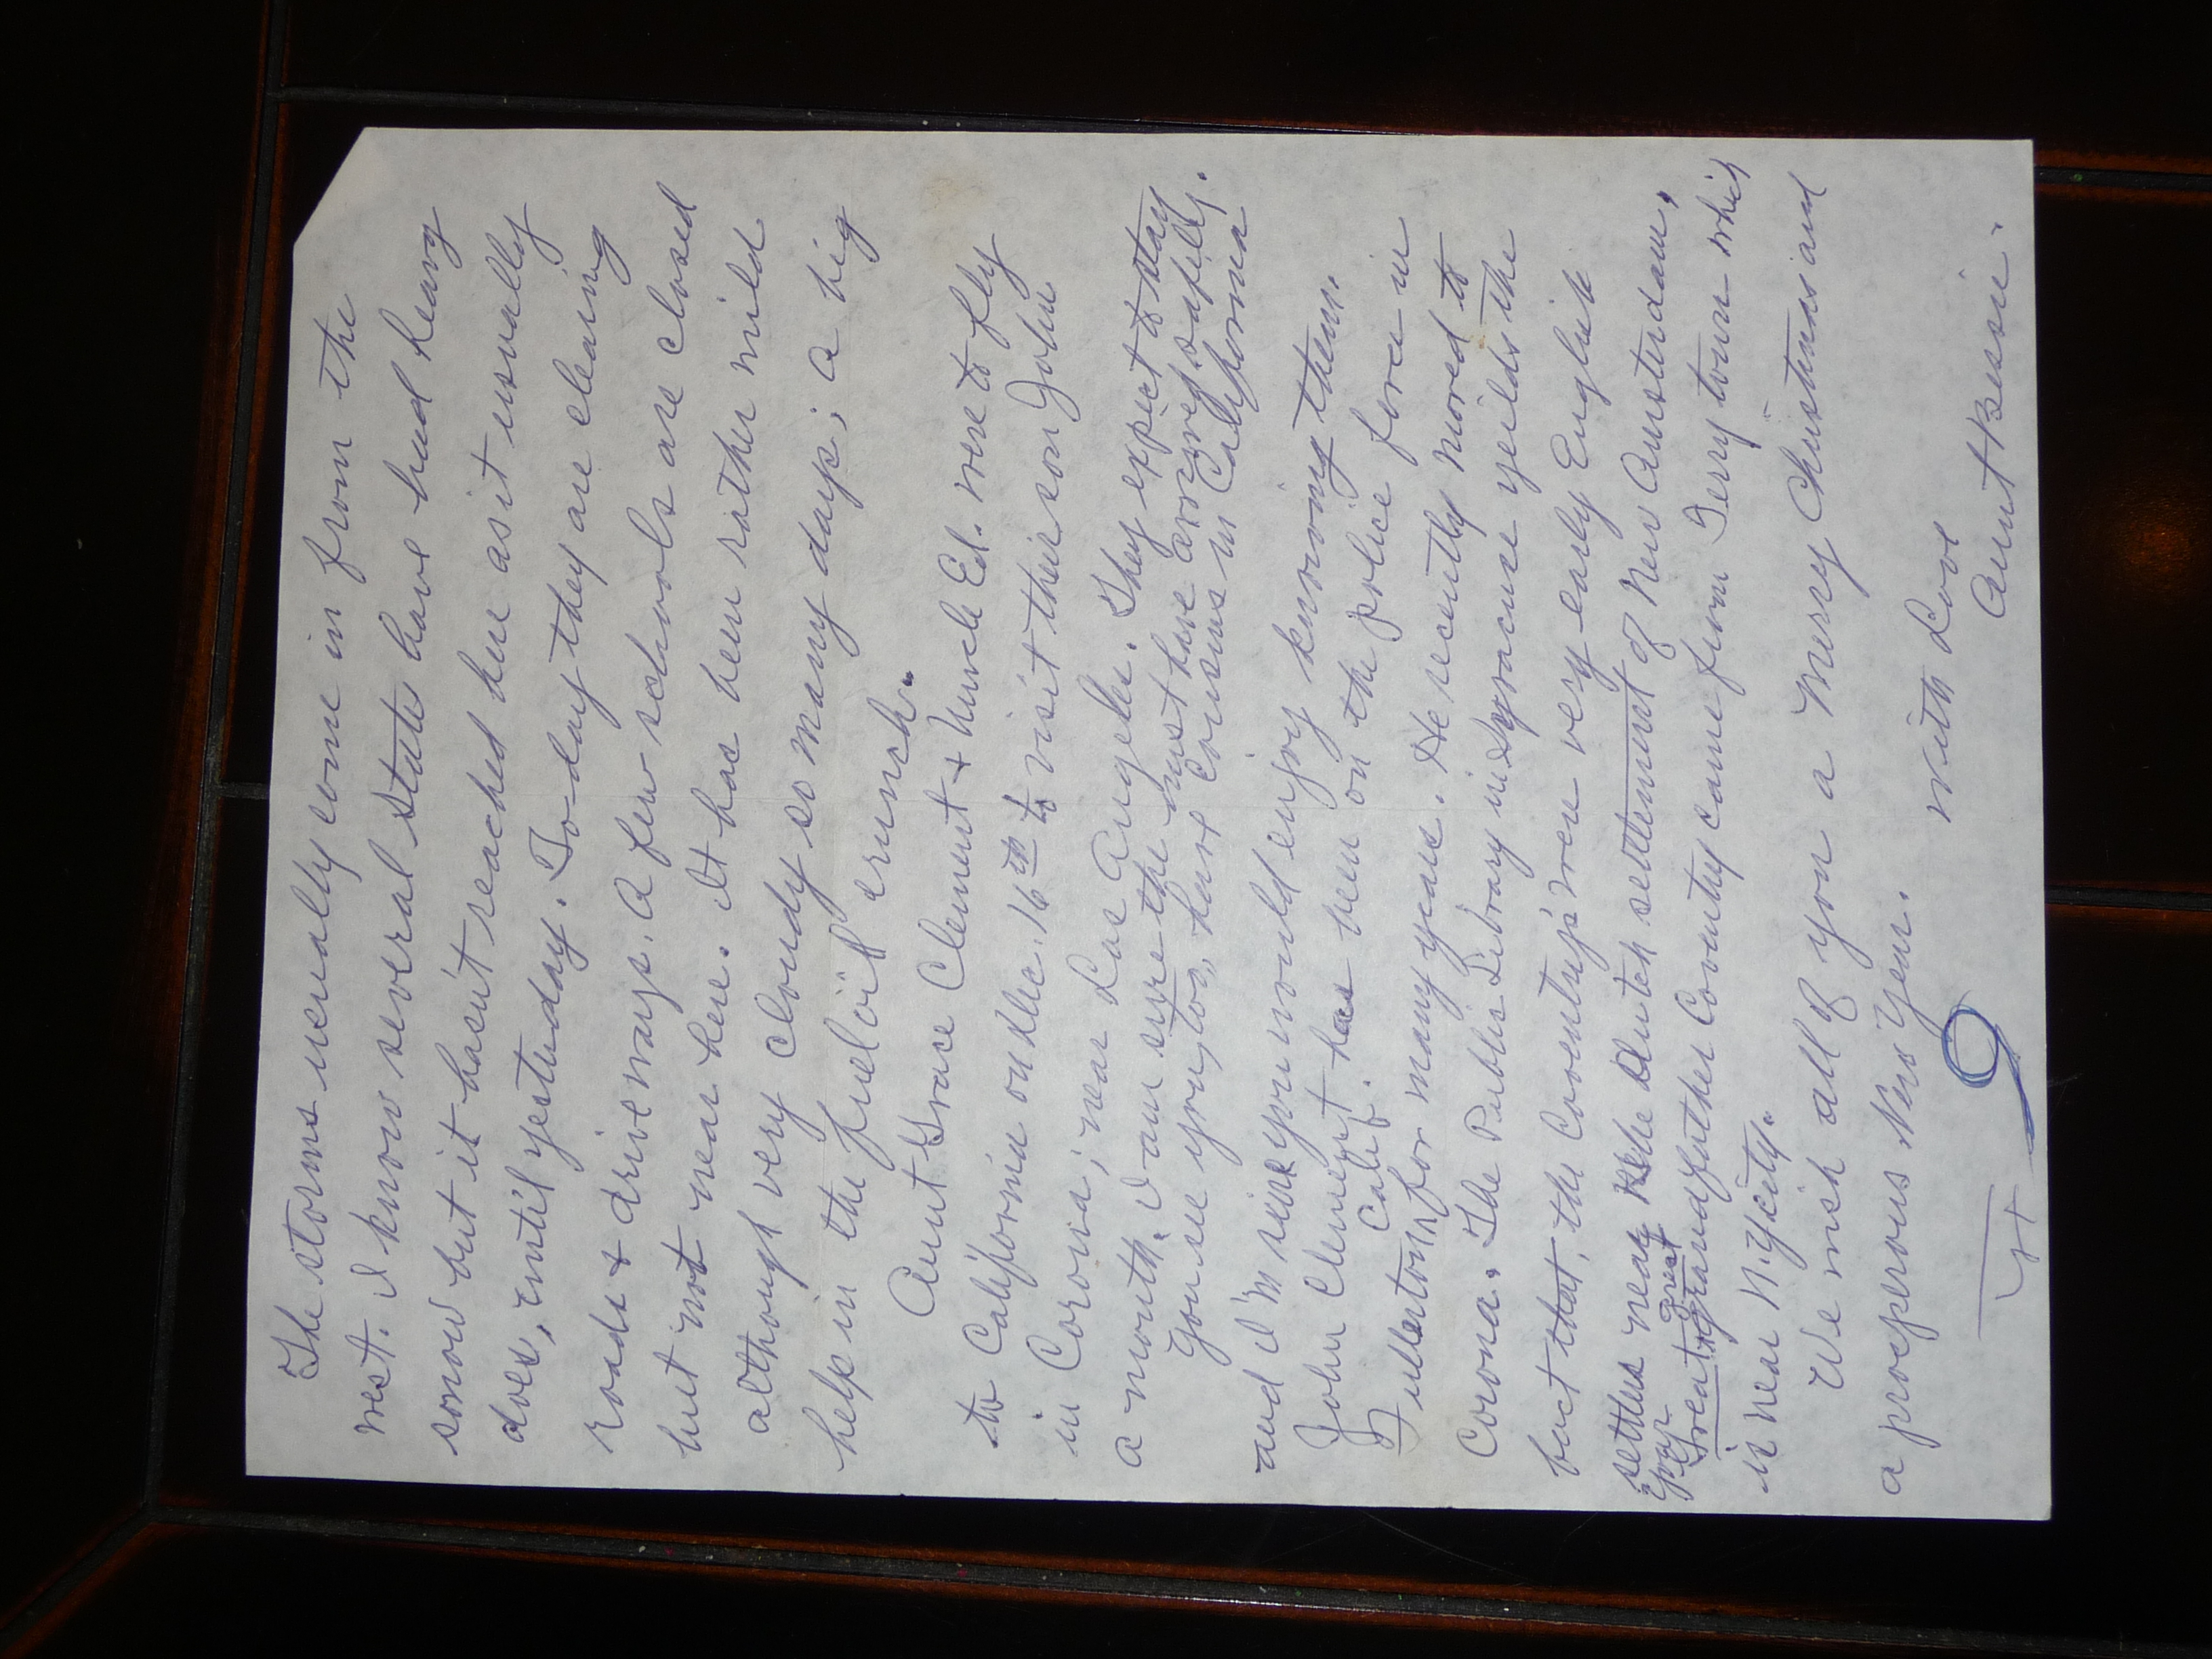 The storms usually come in from the
west. I know several states have had heavy
snow but it hasn't reached here as it usually
does, until yesterday. To-day they are clearing
roads & driveways. A few schools are closed
but not near here. It has been rather mild
although very cloudy so many days; a big
help in the fuel oil crunch.
Aunt Grace Clement & Uncle Ed. were to fly
to California on Dec. 16th to visit their son John
in Corona, near Los Angeles. They expect to stay
a month. I am sure they must have arrived safely.
You see you, too, have cousins in California
and I'm sure you would enjoy knowing them.
John Clement has been on the police force in
Fullerton, Calif. for many years. He recently moved to
Corona. The Public Library in Syracuse yeilds the
fact that, the Coventrys' were very early English
settlers near the Dutch settlement of New Amsterdam,
your Great, great grandfather Coventry came from Terrytown which
is near N.Y. city.
We wish all of you a Merry Christmas and
a prosperous New Year.
With Love
Aunt Bessie.